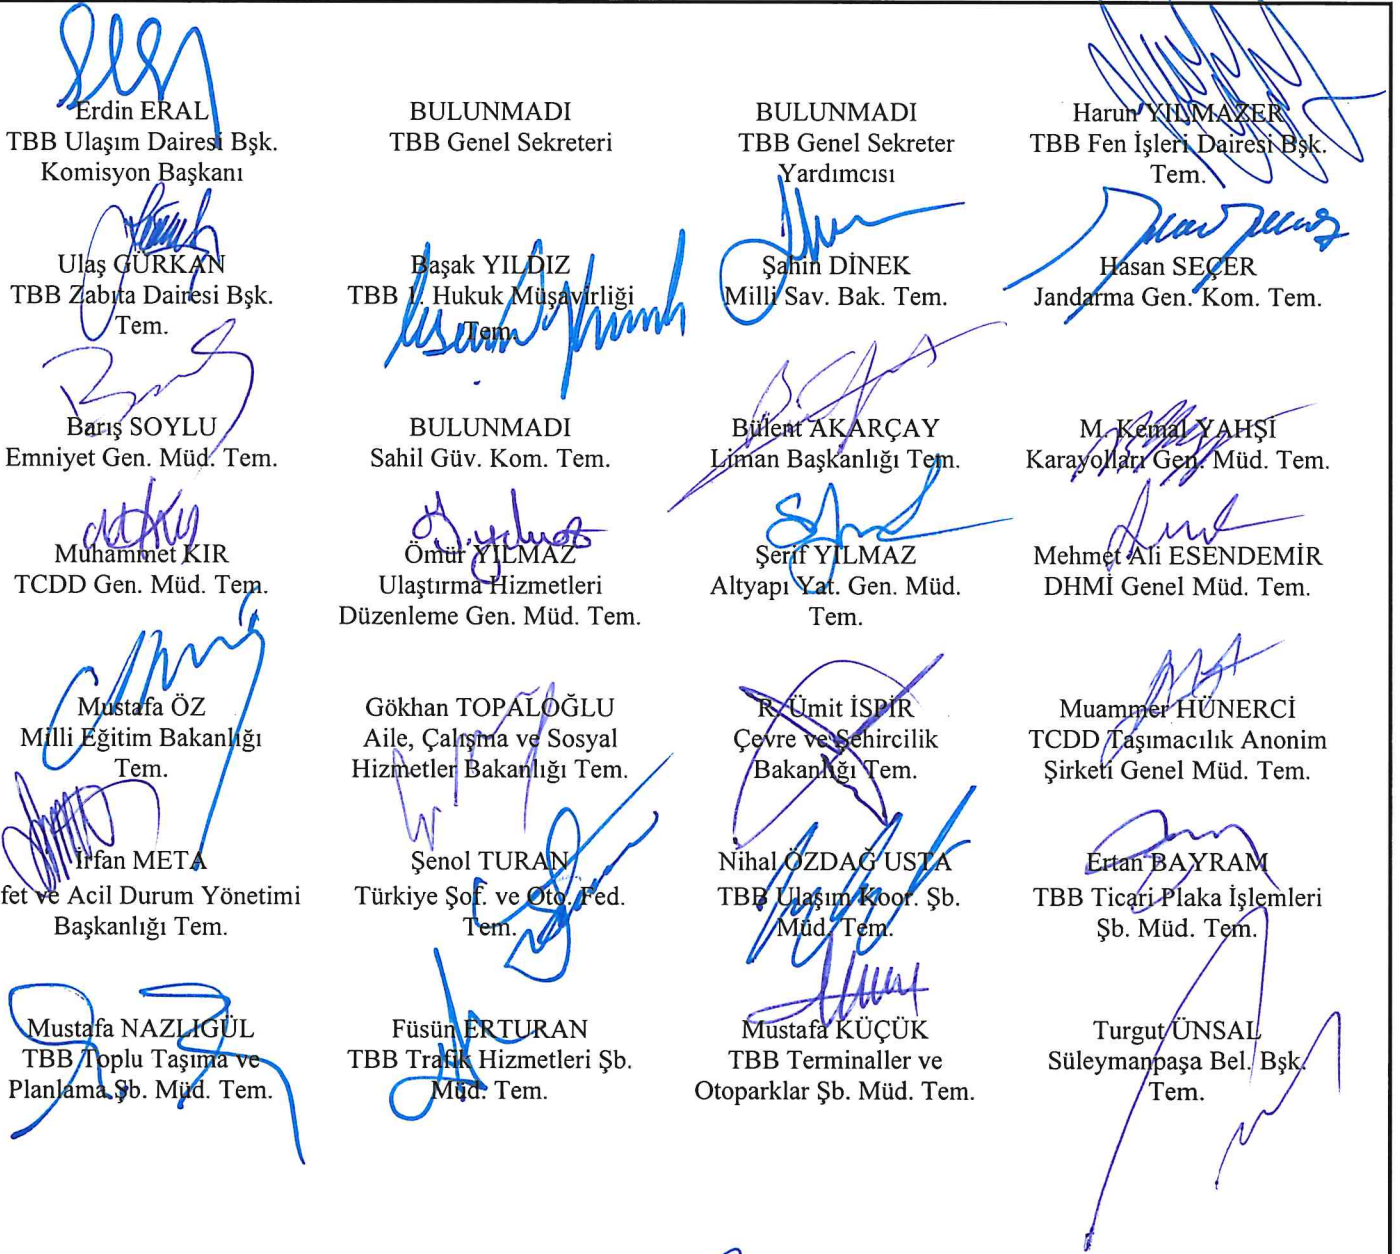 Erdin ERAL
TBB Ulaşım Dairesi Bşk.
Komisyon Başkanı
BULUNMADI
TBB Genel Sekreteri
BULUNMADI
TBB Genel Sekreter
Yardımcısı
Harun YILMAZER
TBB Fen İşleri Dairesi Bşk.
Tem.
Ulaş GÜRKAN
TBB Zabıta Dairesi Bşk.
Tem.
Başak YILDIZ
TBB 1. Hukuk Müşavirliği
Tem.
Şahin DİNEK
Milli Sav. Bak. Tem.
Hasan SEÇER
Jandarma Gen. Kom. Tem.
Barış SOYLU
Emniyet Gen. Müd. Tem.
BULUNMADI
Sahil Güv. Kom. Tem.
Bülent AKARÇAY
Liman Başkanlığı Tem.
M. Kemal YAHŞİ
Karayolları Gen. Müd. Tem.
Muhammet KIR
TCDD Gen. Müd. Tem.
Ömür YILMAZ
Ulaştırma Hizmetleri
Düzenleme Gen. Müd. Tem.
Şerif YILMAZ
Altyapı Yat. Gen. Müd.
Tem.
Mehmet Ali ESENDEMİR
DHMİ Genel Müd. Tem.
Mustafa ÖZ
Milli Eğitim Bakanlığı
Tem.
Gökhan TOPALOĞLU
Aile, Çalışma ve Sosyal
Hizmetler Bakanlığı Tem.
R. Ümit İSPİR
Çevre ve Şehircilik
Bakanlığı Tem.
Muammer HÜNERCİ
TCDD Taşımacılık Anonim
Şirketi Genel Müd. Tem.
İrfan META
fet ve Acil Durum Yönetimi
Başkanlığı Tem.
Şenol TURAN
Türkiye Şof. ve Oto. Fed.
Tem.
Nihal ÖZDAĞ USTA
TBB Ulaşım Koor. Şb.
Müd. Tem.
Ertan BAYRAM
TBB Ticari Plaka İşlemleri
Şb. Müd. Tem.
Mustafa NAZLIGÜL
TBB Toplu Taşıma ve
Planlama Şb. Müd. Tem.
Füsün ERTURAN
TBB Trafik Hizmetleri Şb.
Müd. Tem.
Mustafa KÜÇÜK
TBB Terminaller ve
Otoparklar Şb. Müd. Tem.
Turgut ÜNSAL
Süleymanpaşa Bel. Bşk.
Tem.